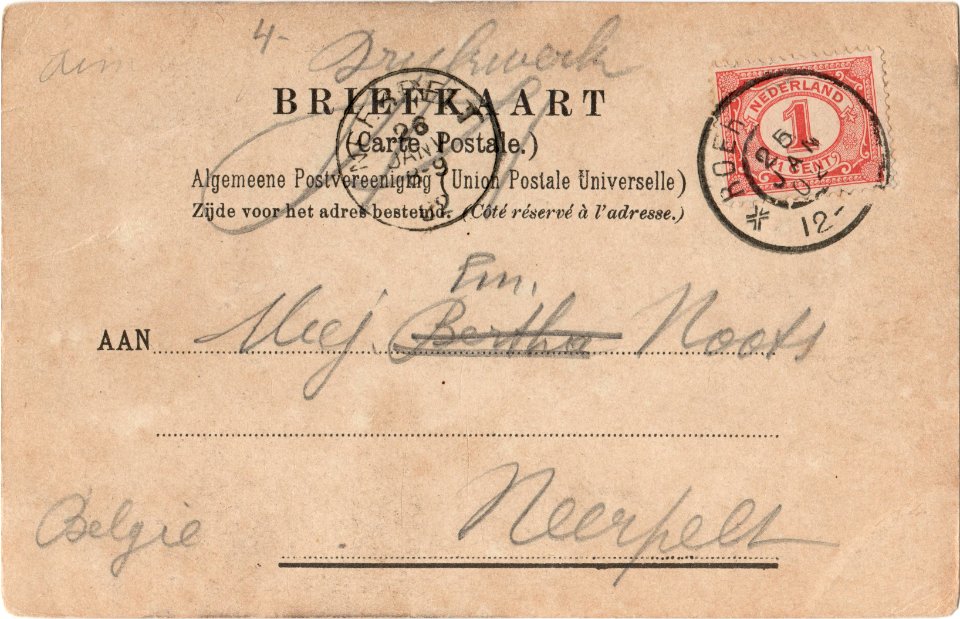 4- Drukwerk
BRIEFKAART
(Carte Postale.)
Algemeene Postvereeniging (Union Postale Universelle)
Zijde voor het adres bestemd. (Côté réservé à l'adresse.)
NEERPELT
26
JANV
8-9
02
NEDERLAND
1
(1 CENT)
25 JAN 02
12-
Em.
AAN Mej. Bertha Noots
Neerpelt
België